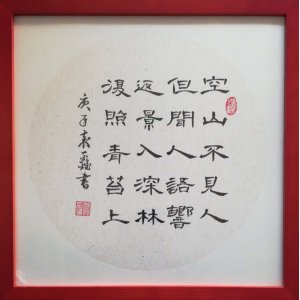 空山不見人
但聞人語響
返景入深林
復照青苔上
庚子袁
書